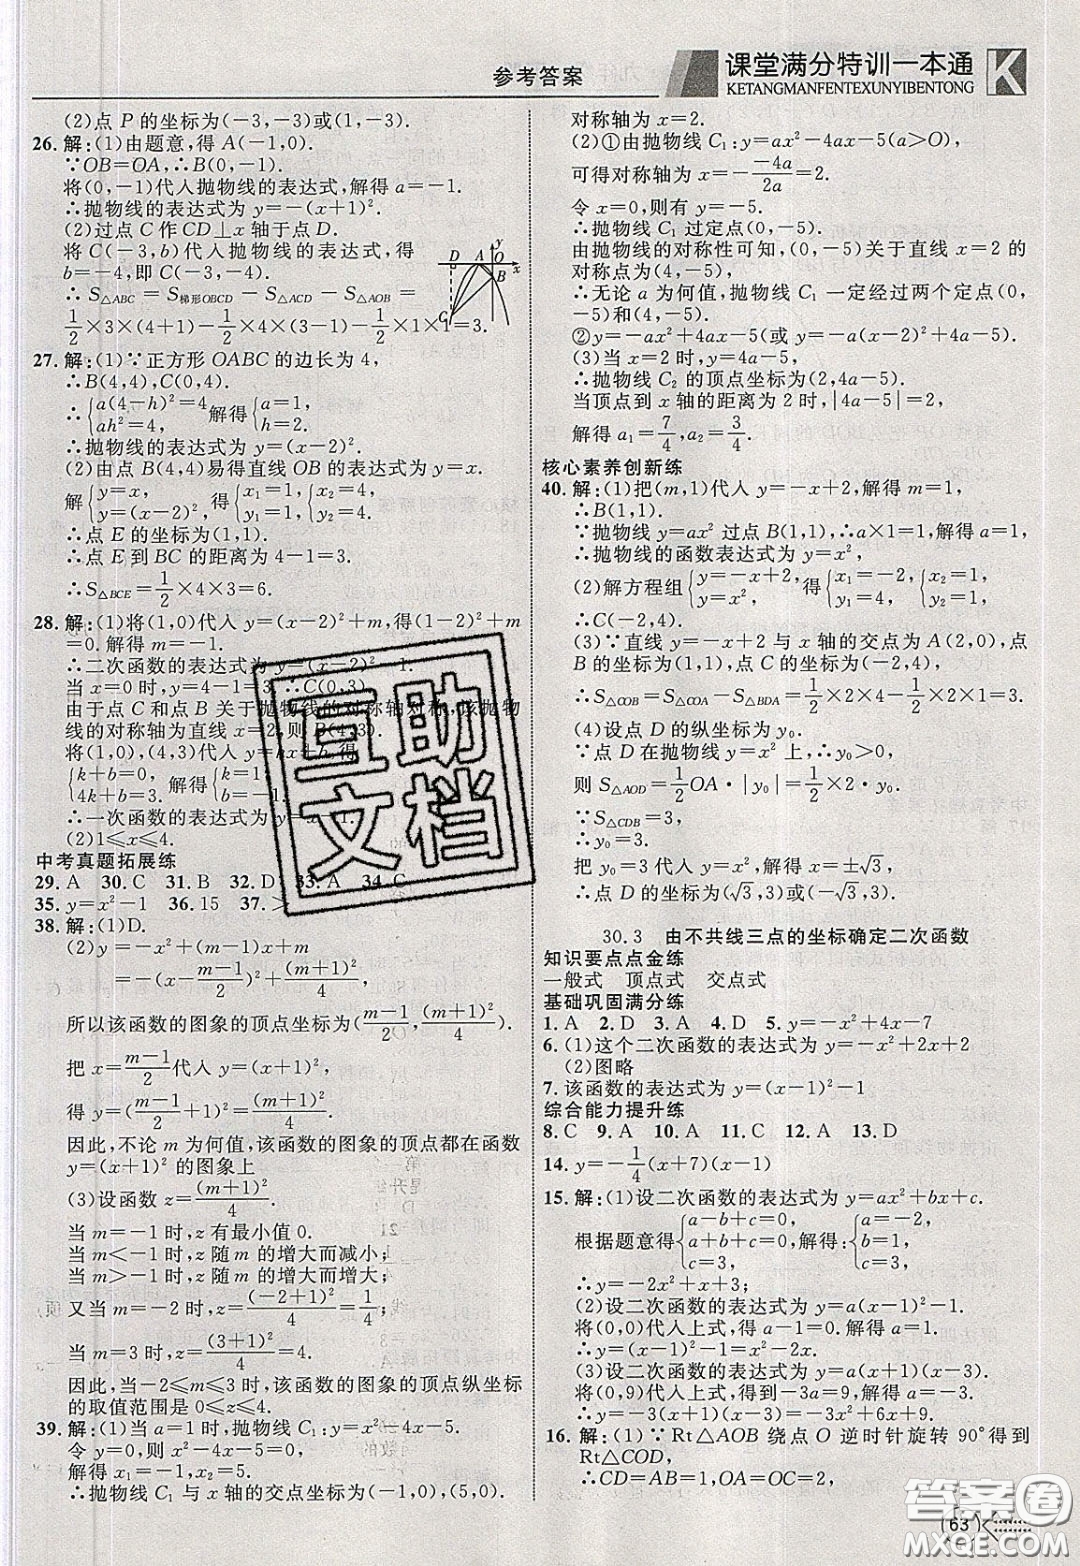 参考答案
课堂满分特训一本通
KETANGMANFENTEXUNYIBENTONG
K
(2)点 P 的坐标为(-3,-3)或(1,-3).
26. 解:(1)由题意,得 A(-1,0).
∵OB=OA,∴B(0,-1).
将(0,-1)代入抛物线的表达式,解得 a=-1.
∴抛物线的表达式为 y=-(x+1)².
(2)过点 C 作 CD⊥x 轴于点 D.
将 C(-3,b)代入抛物线的表达式,得
b=-4,即 C(-3,-4).
∴S△ABC=S梯形OBCD-S△ACD-S△AOB=
1/2×3×(4+1)-1/2×4×(3-1)-1/2×1×1=3.
D A O x y B C
27. 解:(1)∵正方形 OABC 的边长为 4,
∴B(4,4),C(0,4).
∴{a(4-h)²=4 ah²=4, 解得{a=1, h=2.
∴抛物线的表达式为 y=(x-2)².
(2)由点 B(4,4)易得直线 OB 的表达式为 y=x.
解{y=x, y=(x-2)², 得{x₁=1, y₁=1, {x₂=4, y₂=4.
∴点 E 的坐标为(1,1).
∴点 E 到 BC 的距离为 4-1=3.
∴S△BCE=1/2×4×3=6.
28. 解:(1)将(1,0)代入 y=(x-2)²+m,得(1-2)²+m
=0. 解得 m=-1.
∴二次函数的表达式为 y=(x-2)²-1.
当 x=0 时,y=4-1=3,∴C(0,3).
由于点 C 和点 B 关于抛物线的对称轴对称,该抛物
线的对称轴为直线 x=2,则 B(4,3).
将(1,0),(4,3)代入 y=kx+b,得
{k+b=0, 4k+b=3. 解得{k=1,
∴一次函数的表达式为 y=x-1.
(2)1≤x≤4.
中考真题拓展练
29. A 30. C 31. B 32. D 33. A 34. C
35. y=x²-1 36. 15 37. >
38. 解:(1)D.
(2)y=-x²+(m-1)x+m
=-(x-(m-1)/2)²+(m+1)²/4,
所以该函数的图象的顶点坐标为((m-1)/2,(m+1)²/4).
把 x=(m-1)/2代入 y=(x+1)²,
得 y=((m-1)/2+1)²=(m+1)²/4,
因此,不论 m 为何值,该函数的图象的顶点都在函数
y=(x+1)²的图象上
(3)设函数 z=(m+1)²/4.
当 m=-1 时,z 有最小值 0.
当 m<-1 时,z 随 m 的增大而减小;
当 m>-1 时,z 随 m 的增大而增大;
又当 m=-2 时,z=(-2+1)²/4=1/4;
当 m=3 时,z=(3+1)²/4=4.
因此,当-2≤m≤3 时,该函数的图象的顶点纵坐标
的取值范围是 0≤z≤4.
39. 解:(1)当 a=1 时,抛物线 C₁:y=x²-4x-5.
令 y=0,则 x²-4x-5=0.
解得 x₁=-1,x₂=5.
∴抛物线 C₁ 与 x 轴的交点坐标为(-1,0),(5,0).
对称轴为 x=2.
(2)①由抛物线 C₁:y=ax²-4ax-5(a>O),
可得对称轴为 x=-(-4a)/2a=2.
令 x=0,则有 y=-5.
∴抛物线 C₁ 过定点(0,-5).
由抛物线的对称性可知,(0,-5)关于直线 x=2 的
对称点为(4,-5),
∴无论 a 为何值,抛物线 C₁ 一定经过两个定点(0,
-5)和(4,-5).
②y=-ax²+4ax-5(或 y=-a(x-2)²+4a-5)
(3)当 x=2 时,y=4a-5.
∴抛物线 C₂ 的顶点坐标为(2,4a-5).
当顶点到 x 轴的距离为 2 时,|4a-5|=2,
解得 a₁=7/4,a₂=3/4.
核心素养创新练
40. 解:(1)把(m,1)代入 y=-x+2,解得 m=1,
∴B(1,1).
∵抛物线 y=ax² 过点 B(1,1),∴a×1=1,a=1.
∴抛物线的函数表达式为 y=x²,
(2)解方程组{y=-x+2, y=x², 得{x=1, y=1, 或{x=-2, y=4,
∴C(-2,4).
(3)∵直线 y=-x+2与 x 轴的交点为 A(2,0),点
B 的坐标为(1,1),点 C 的坐标为(-2,4),
∴S△COB=S△COA-S△BDA=1/2×2×4-1/2×2×1=3.
(4)设点 D 的纵坐标为 y₀.
∵点 D 在抛物线 y=x² 上,∴y₀>0.
则 S△AOD=1/2OA·|y₀|=1/2×2·y₀.
∵S△CDB=3,
∴y₀=3.
把 y₀=3代入 y=x²,解得 x=±√3,
∴点 D 的坐标为(√3,3)或(-√3,3).
30.3 由不共线三点的坐标确定二次函数
知识要点点金练
一般式 顶点式 交点式
基础巩固满分练
1. A 2. D 3. A 4. D 5. y=-x²+4x-7
6. (1)这个二次函数的表达式为 y=-x²+2x+2
(2)图略
7. 该函数的表达式为 y=(x-1)²-1
综合能力提升练
8. C 9. A 10. A 11. C 12. A 13. D
14. y=-1/4(x+7)(x-1)
15. 解:(1)设二次函数的表达式为 y=ax²+bx+c.
根据题意得{a-b+c=0, c=3, a+b+c=2, 解得:{a=-2, b=1, c=3.
∴y=-2x²+x+3;
(2)设二次函数的表达式为 y=a(x-1)²-1.
将(0,0)代入上式,得 a-1=0. 解得 a=1.
∴y=(x-1)²-1=x²-2x.
(3)设二次函数的表达式为 y=a(x-1)(x-3).
将(0,9)代入上式,得到-a×(-3)=9. 解得 a=3.
∴y=3(x-1)(x-3)=3(x-2)²-3=3x²-6x+9.
16. 解:(1)∵Rt△AOB 绕点 O 逆时针旋转 90°得到
Rt△COD,
∴CD=AB=1,OA=OC=2.
互助
文档
答案圈
MXQE.COM
(63)